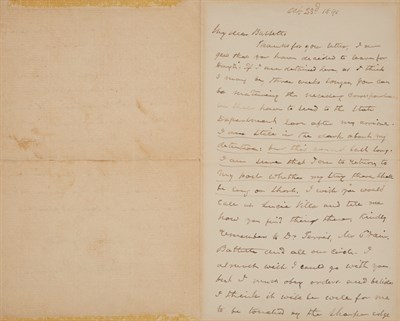 Dec 23d 1891
My dear Bassett
Thanks for your letter, I am
glad that you have decided to leave for
Hayti. If I am detained here as I think
I may be three weeks longer you can
be matching the necessary
hours to send to the State
Department soon after my arrival.
I am still in the dark about my
detention; but this cannot last long.
I am sure that I am to return to
my post whether my stay there shall
be long or short. I wish you would
call at Lucia Villa and tell me
how you find things there, kindly
remember to Dr Terres, Mr
Battiste and all our circle. I
much wish I could go with you
but I must obey orders and besides
I think it will be well for me
to be touched by the sharper edge